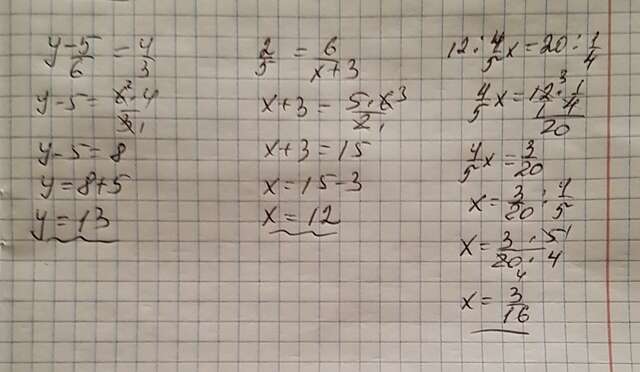 (y-5)/6 = 4/3
y-5 = (6̶² · 4)/3̶₁
y-5=8
y=8+5
y=13
2/5 = 6/(x+3)
x+3 = (5·6̶³)/2̶₁
x+3=15
x=15-3
x=12
12 : 4/5 x = 20 : 1/4
4/5 x = (12³/1 · 1/4)/20
4/5 x = 3/20
x = 3/20 : 4/5
x = (3 · 5̶¹)/(2̶0̶₄ · 4)
x = 3/16